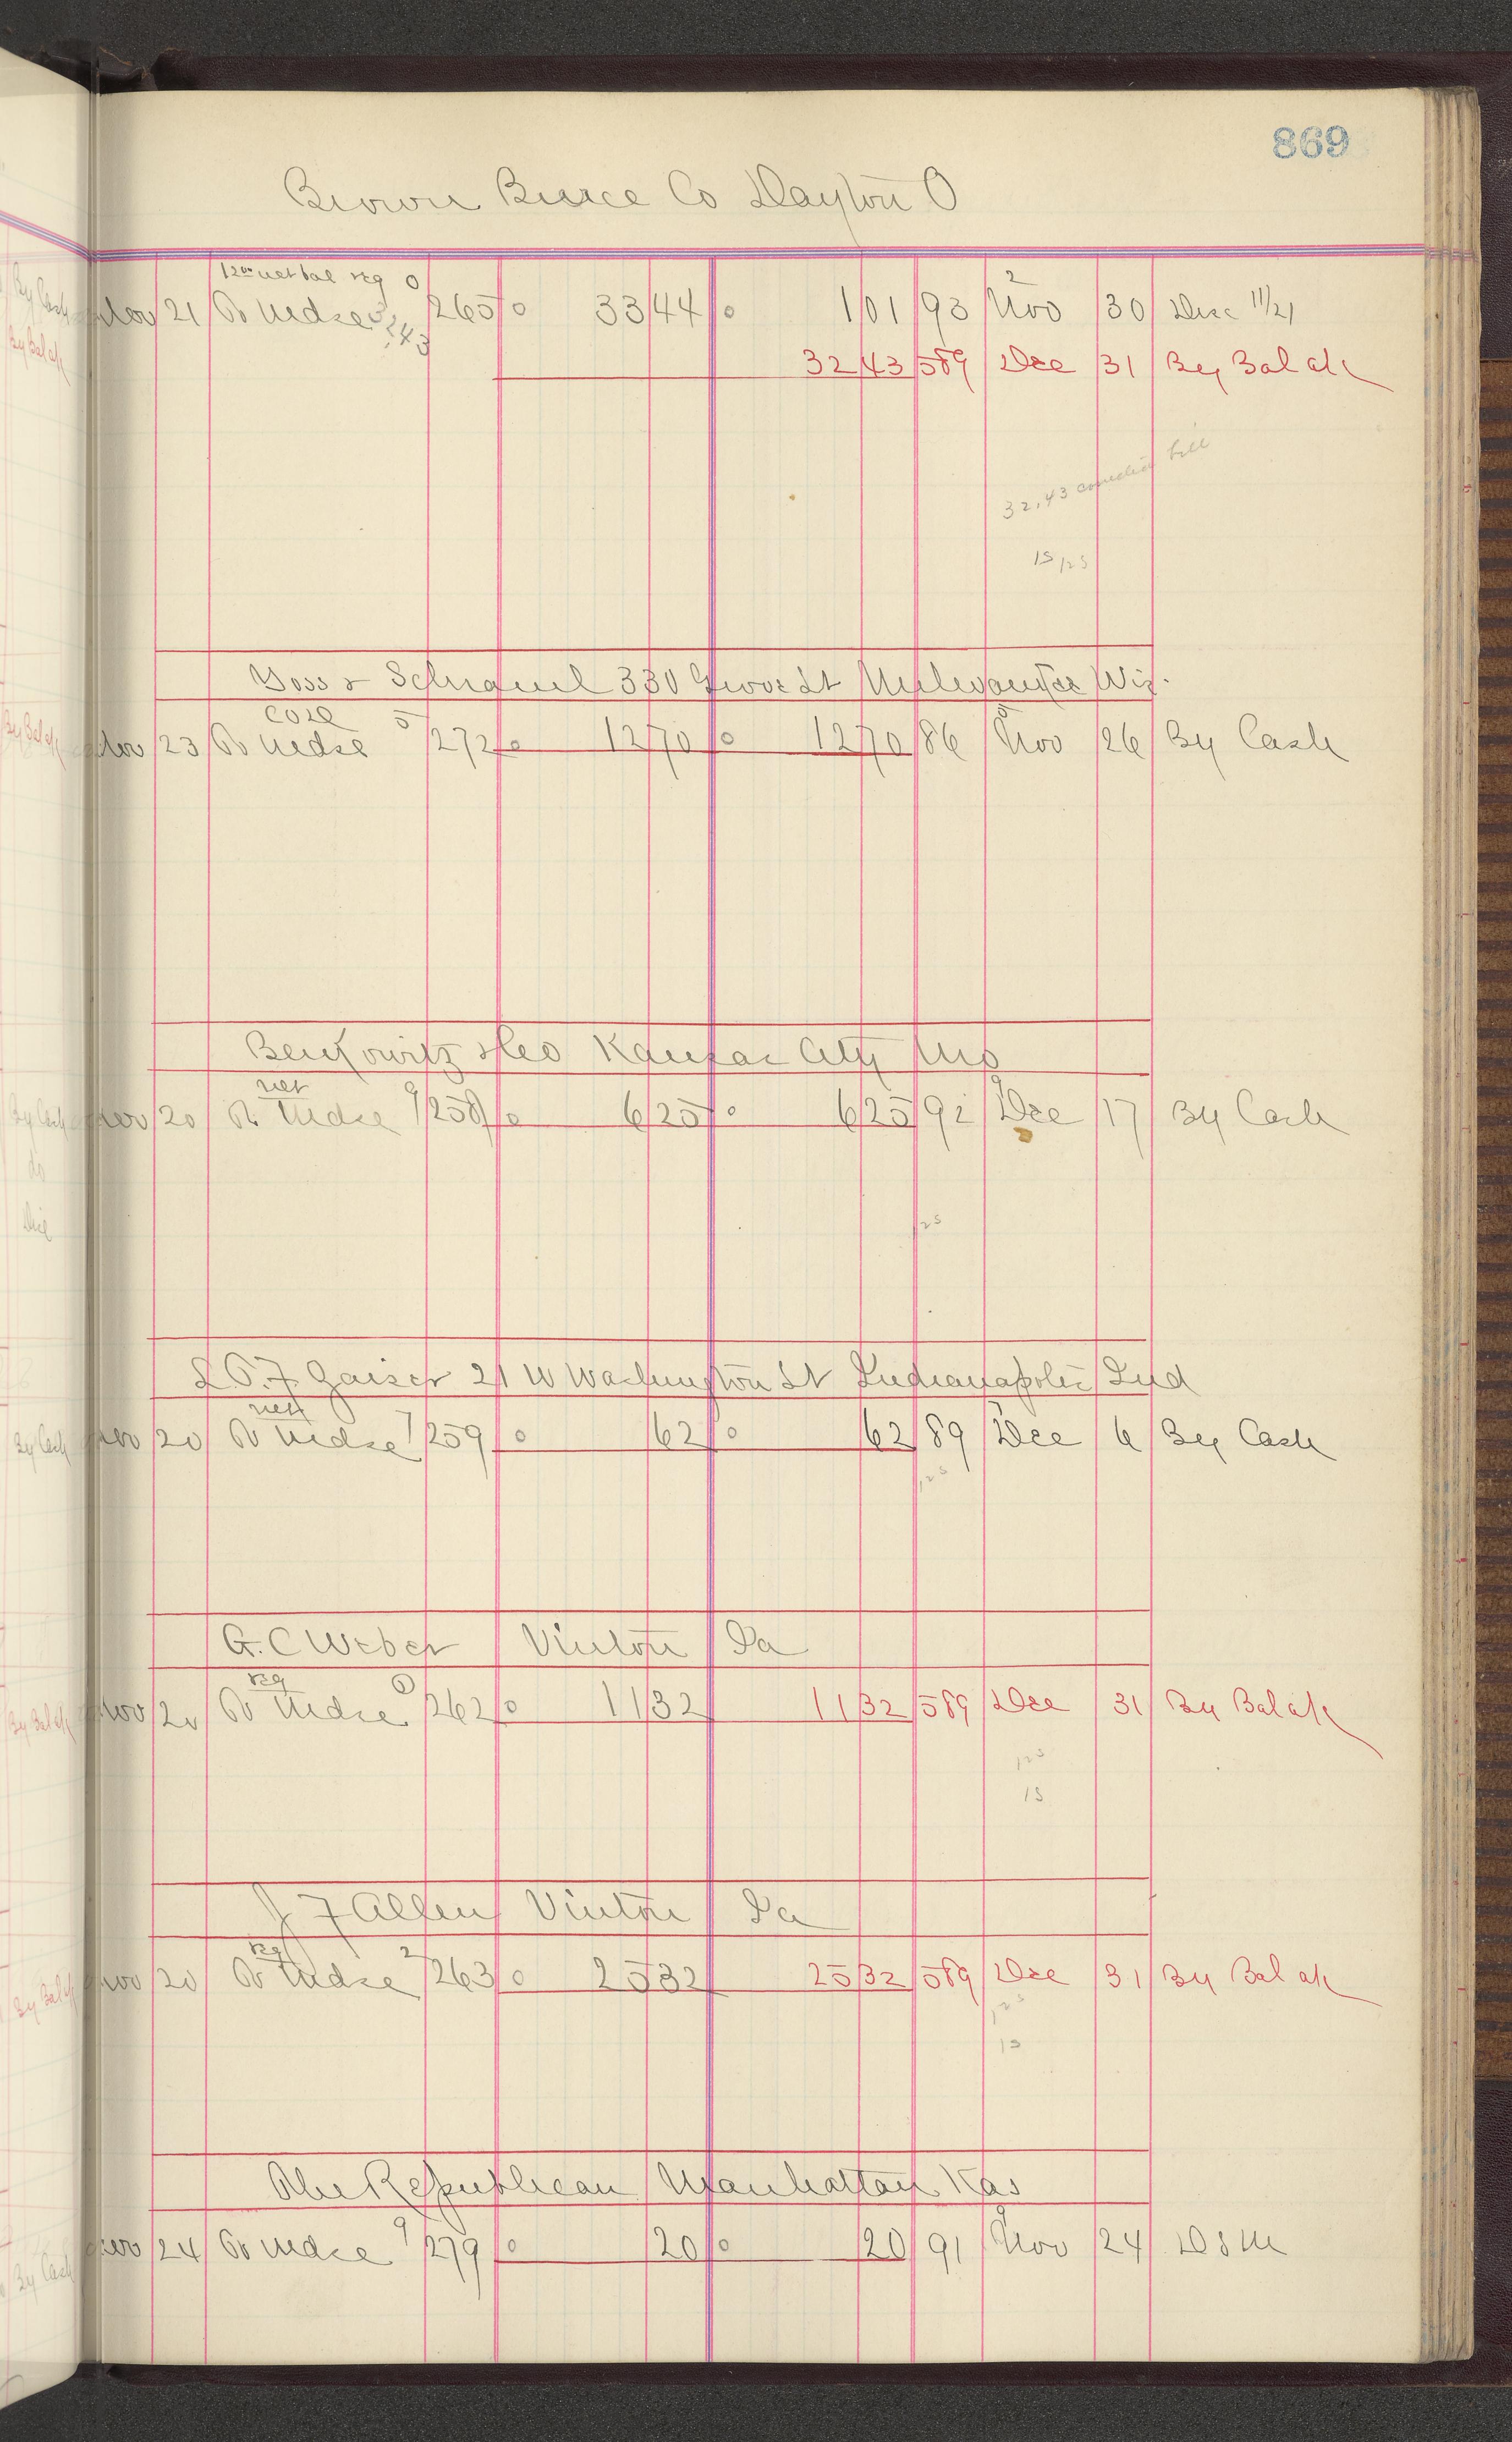 869
Brown Co Dayton O
12 00 net bal reg 0
Nov 21 To Mdse 265 0 33 44 0 1 01 93 Nov 30 Disc 11/21
32 43
32 43 589 Dec 31 By Bal a/c
32.43 bill
15 125
& 330 St Milwaukee Wis.
5
Nov 23 To Mdse 272 0 12 70 0 12 70 86 Nov 26 By Cash
Berkowitz & Co Kansas City Mo
net 9 9
Nov 20 To Mdse 258 0 6 25 0 6 25 92 Dec 17 By Cash
125
L. P. F. Gaiser 21 W Washington St Indianapolis Ind
net 7
Nov 20 To Mdse 259 0 62 0 62 89 Dec 6 By Cash
125
G. C Weber Vinton Ia
reg 0
Nov 20 To Mdse 262 0 11 32 11 32 589 Dec 31 By Bal a/c
125
15
J F Allen Vinton Ia
reg 2
Nov 20 To Mdse 263 0 25 32 25 32 589 Dec 31 By Bal a/c
125
15
The Republican Manhattan Kas
9 9
Nov 24 To Mdse 279 0 20 0 20 91 Nov 24
By Cash
By Bal a/c
By Bal a/c
By Cash
do
Disc
By Cash
By Bal a/c
By Bal a/c
By Cash